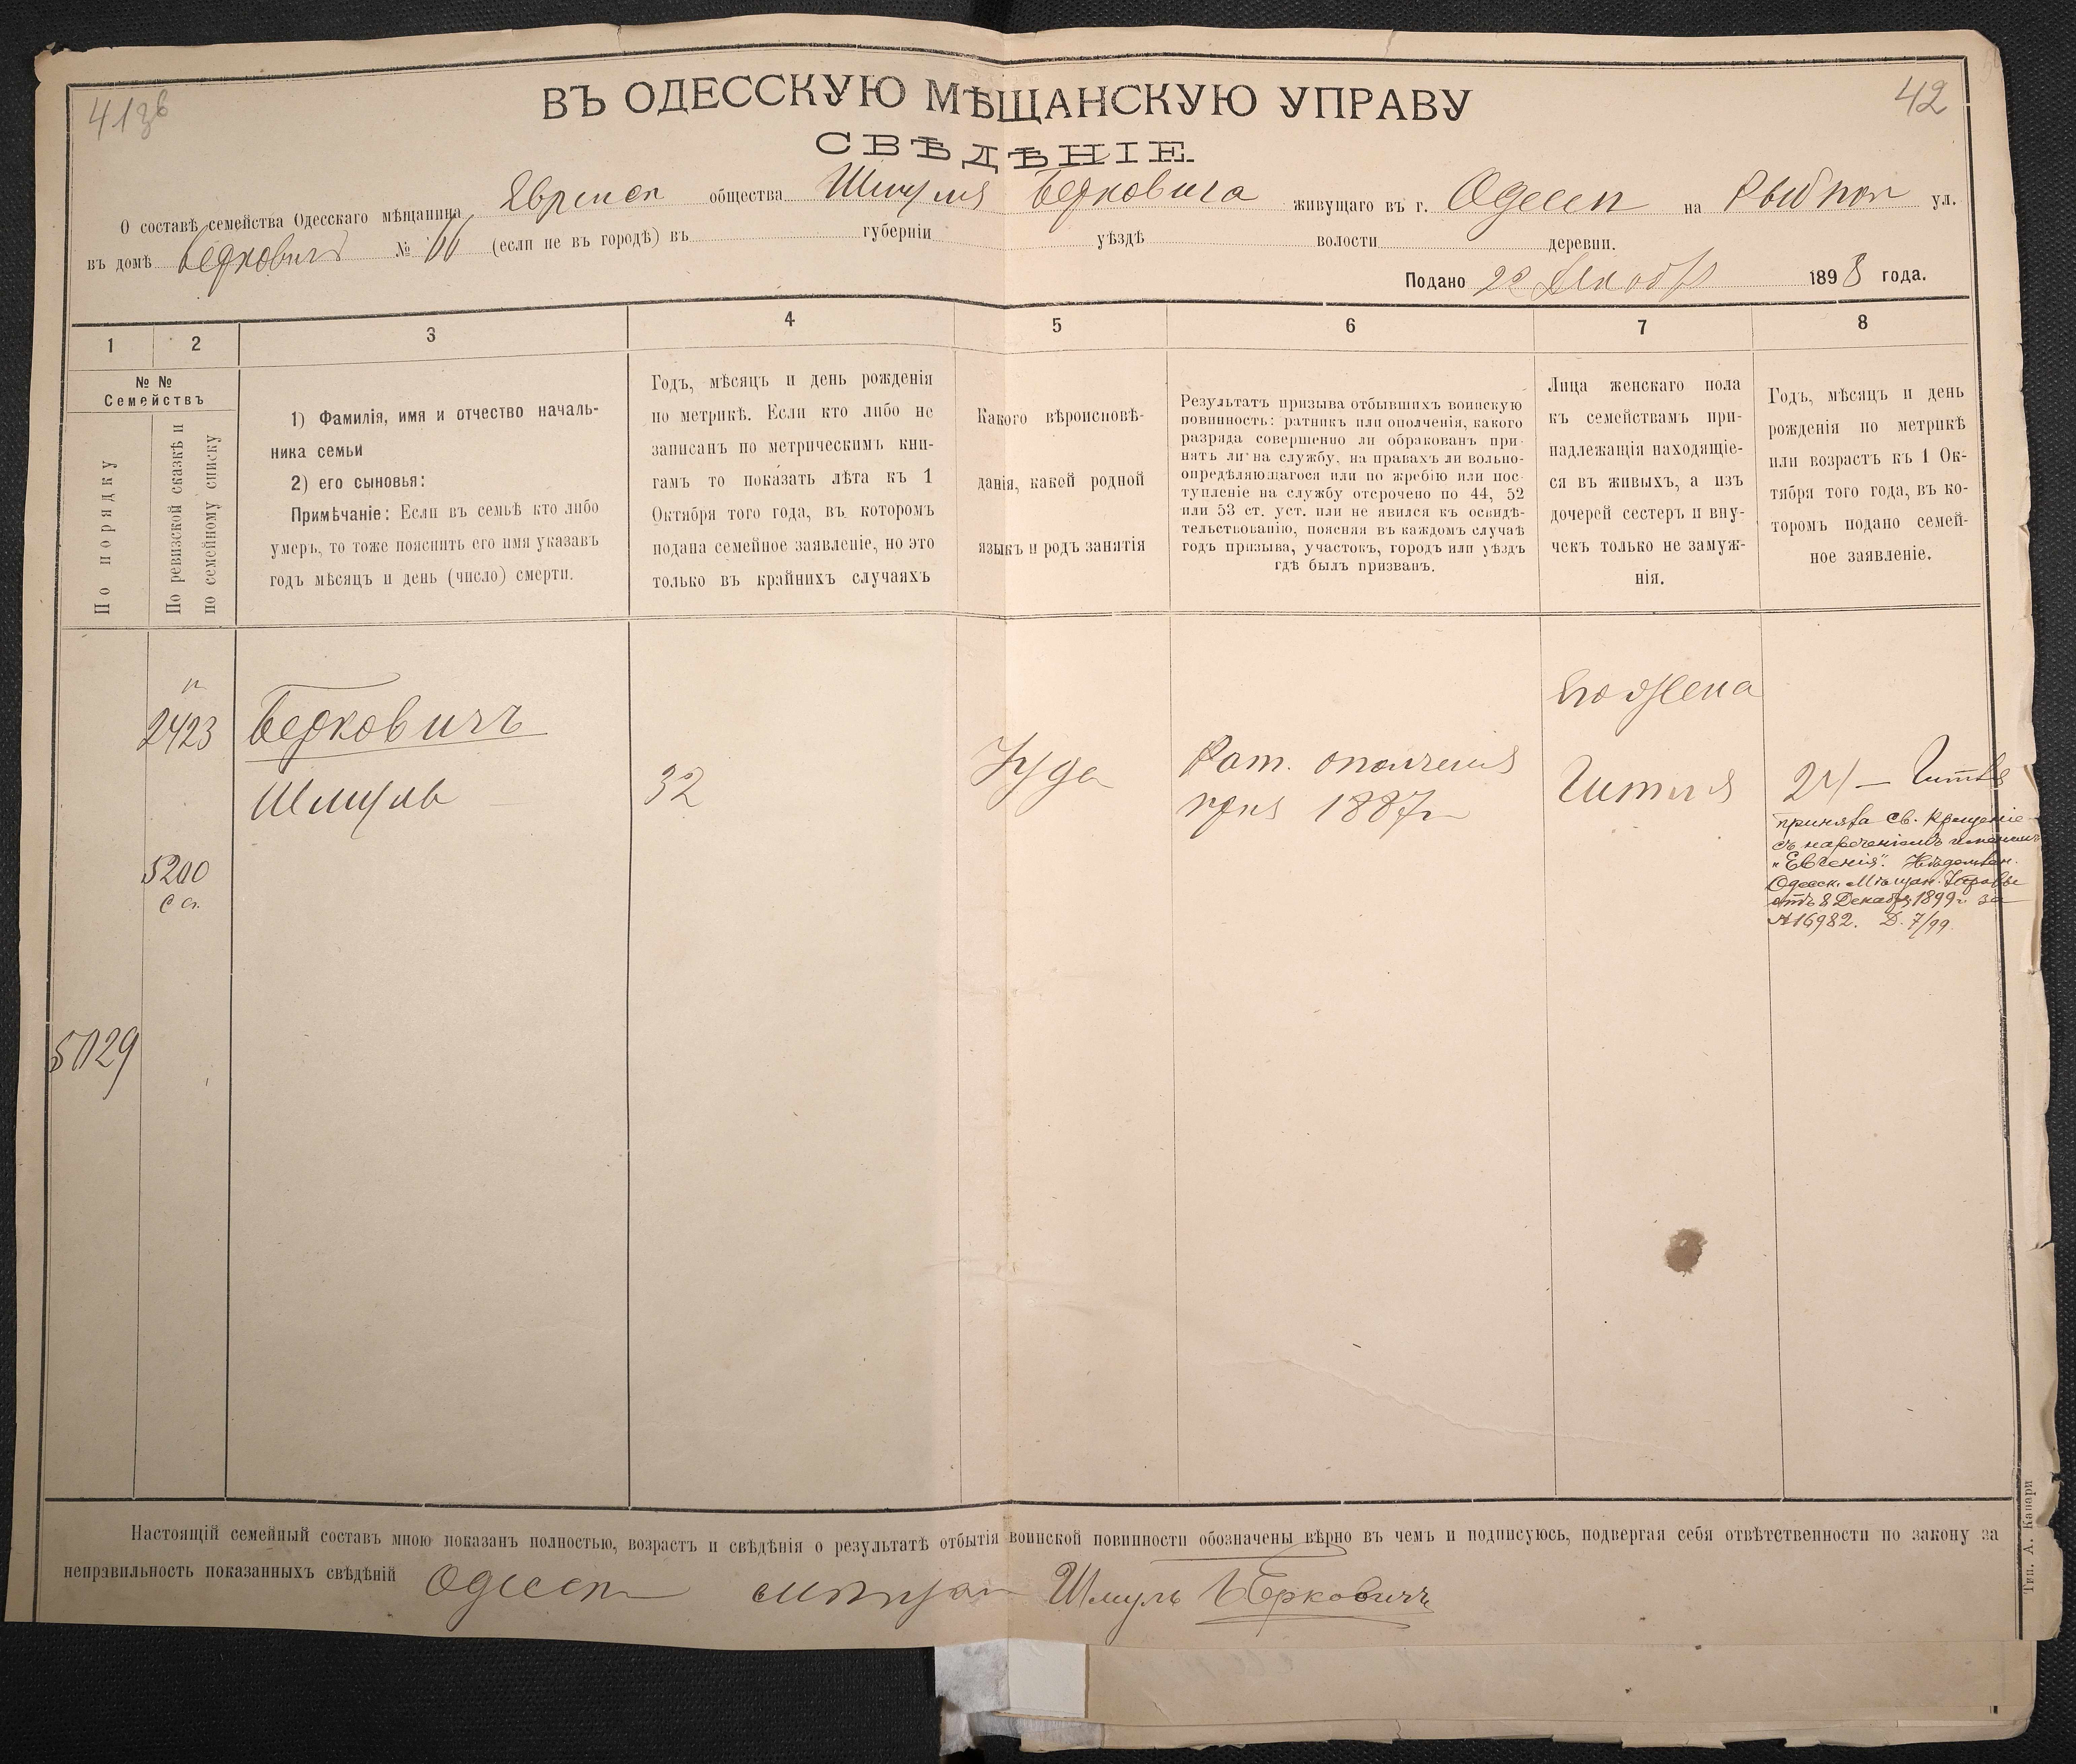 413в
42
ВЪ ОДЕССКУЮ МѢЩАНСКУЮ УПРАВУ
СВѢДѢНІЕ.
О составѣ семейства Одесскаго мѣщанина Евреиск общества Шмуля Берковича живущаго въ г. Одессѣ на Рыбной ул.
въ домѣ Беркович № (если не въ городѣ) въ губерніи уѣздѣ волости деревни.
Подано 22 Декабр 1898 года.
1 2 3 4 5 6 7 8
№ № Семействъ
По порядку
По ревизской сказкѣ и по семейному списку
1) Фамилія, имя и отчество началь-
ника семьи
2) его сыновья:
Примѣчаніе: Если въ семьѣ кто либо
умеръ, то тоже пояснить его имя указавъ
годъ мѣсяцъ и день (число) смерти.
Годъ, мѣсяцъ и день рожденія
по метрикѣ. Если кто либо не
записанъ по метрическимъ кни-
гамъ то показать лѣта къ 1
Октября того года, въ которомъ
подана семейное заявленіе, но это
только въ крайнихъ случаяхъ
Какого вѣроисповѣ-
данія, какой родной
языкъ и родъ занятія
Результатъ призыва отбывшихъ воинскую
повинность: ратникъ или ополченія, какого
разряда совершенно ли обракованъ при-
нятъ ли на службу, на правахъ ли вольно-
опредѣляющагося или по жребію или пос-
тупленіе на службу отсрочено по 44, 52
или 53 ст. уст. или не явился къ освидѣ-
тельствованію, поясняя въ каждомъ случаѣ
годъ призыва, участокъ, городъ или уѣздъ
гдѣ былъ призванъ.
Лица женскаго пола
къ семействамъ при-
надлежащія находящіе-
ся въ живыхъ, а изъ
дочерей сестеръ и вну-
чекъ только не замуж-
нія.
Годъ, мѣсяцъ и день
рожденія по метрикѣ
или возрастъ къ 1 Ок-
тября того года, въ ко-
торомъ подано семей-
ное заявленіе.
2423 Берковичъ
его жена
Шмуль 32 Іуде Рат. ополченія Гитля 24 — Гитля
приз 1887 г
приняла Св. Крещеніе
съ нареченіемъ именемъ
"Евгенія".
Одесск. Мѣщан. Управы
отъ 8 Декабря 1899 г. за
№ 16982. Д. 7/99.
5200
5029
Настоящій семейный составъ мною показанъ полностью, возрастъ и свѣдѣнія о результатѣ отбытія воинской повинности обозначены вѣрно въ чемъ и подписуюсь, подвергая себя отвѣтственности по закону за
неправильность показанныхъ свѣдѣній Одесск мѣщан Шмуль Берковичъ
Тип. А. Капари